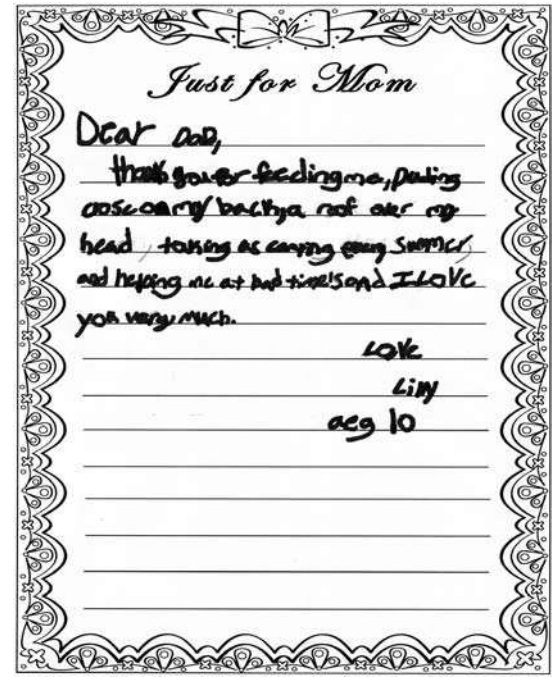 Just for Mom
Dear DaD,
thank you for feeding me, puting
close on my back, a roof over my
head, taking us caming every summer,
and helping me at bad time's and I LOVe
you very much.
LOVe
Lilly
aeg 10